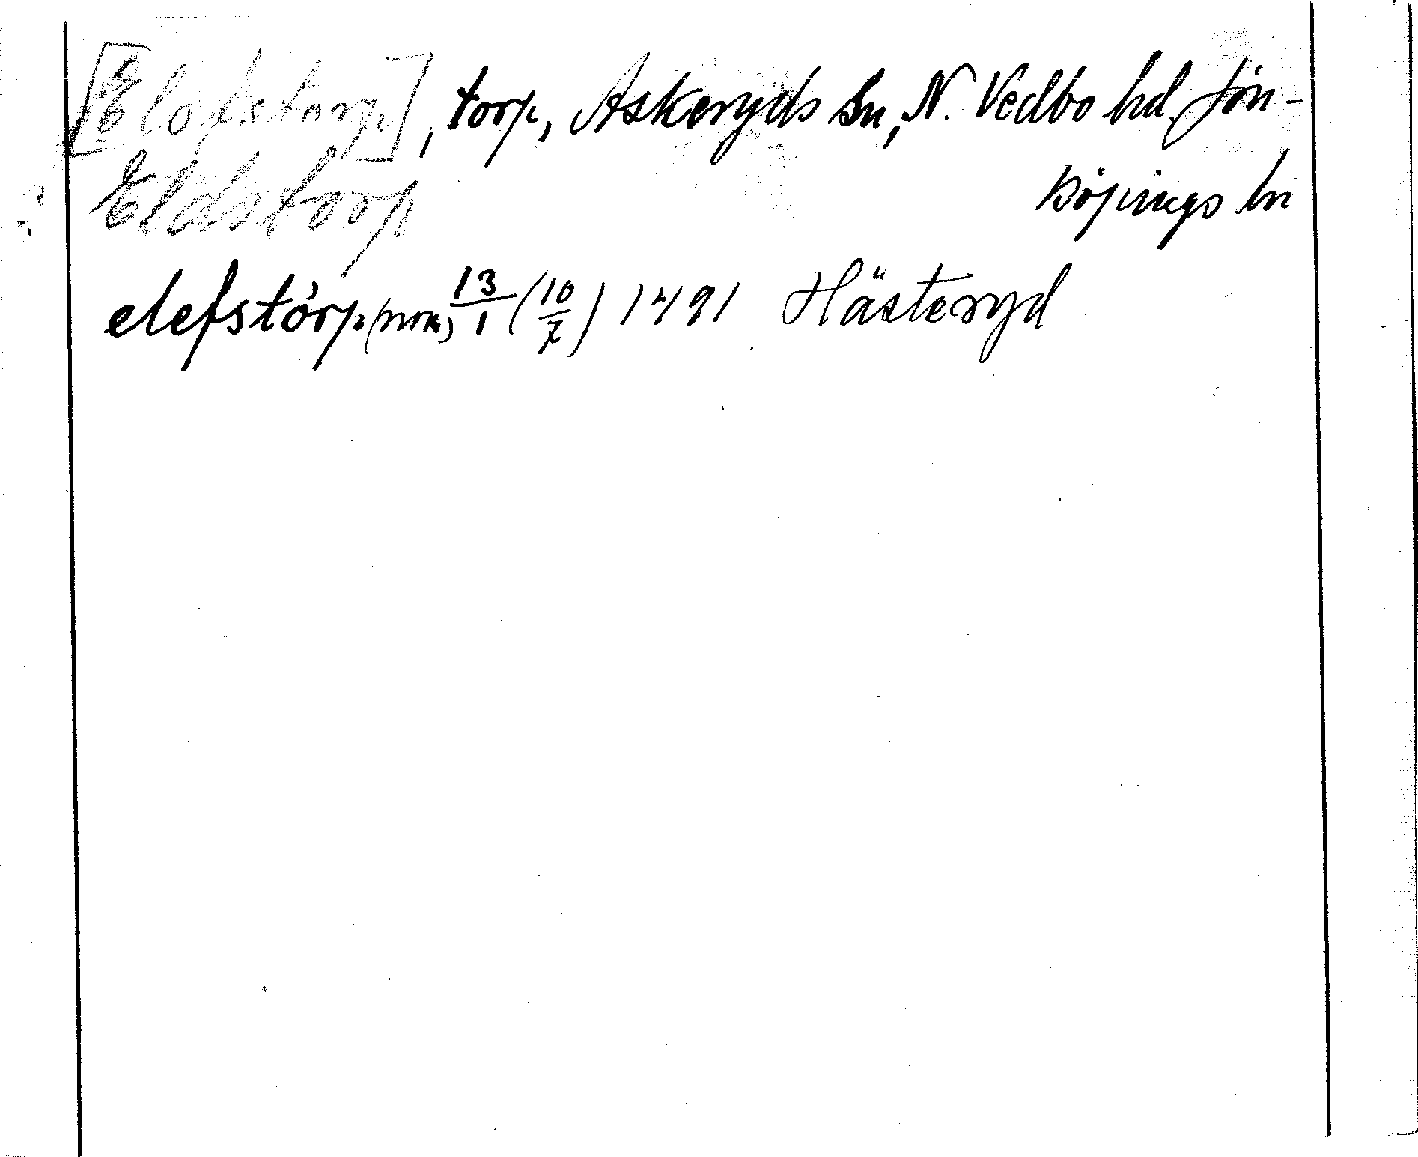 [Elofstorp], torp, Askeryds Sn, N. Vedbo hd. Jön-
köpings ln
Eldstorp
elefstorp 13/1 (10/7) 1491 Hästeryd